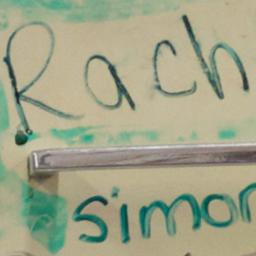 Rach
simon